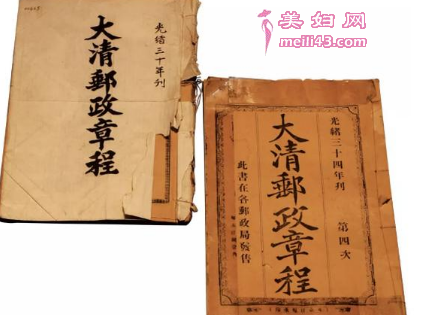 美妇网
meili43.com
光緒三十年刊
大清郵政章程
光緒三十四年刊
第四次
大清郵政章程
此書在各郵政局發售